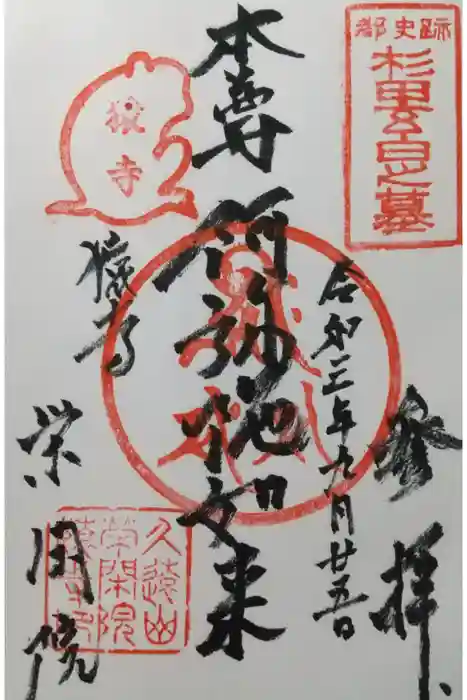 都史跡
杉田玄白之墓
奉拝
令和三年九月廿五日
本尊 阿弥陀如来
猿寺
猿寺
栄閑院
久遠山
榮閑院
猿寺